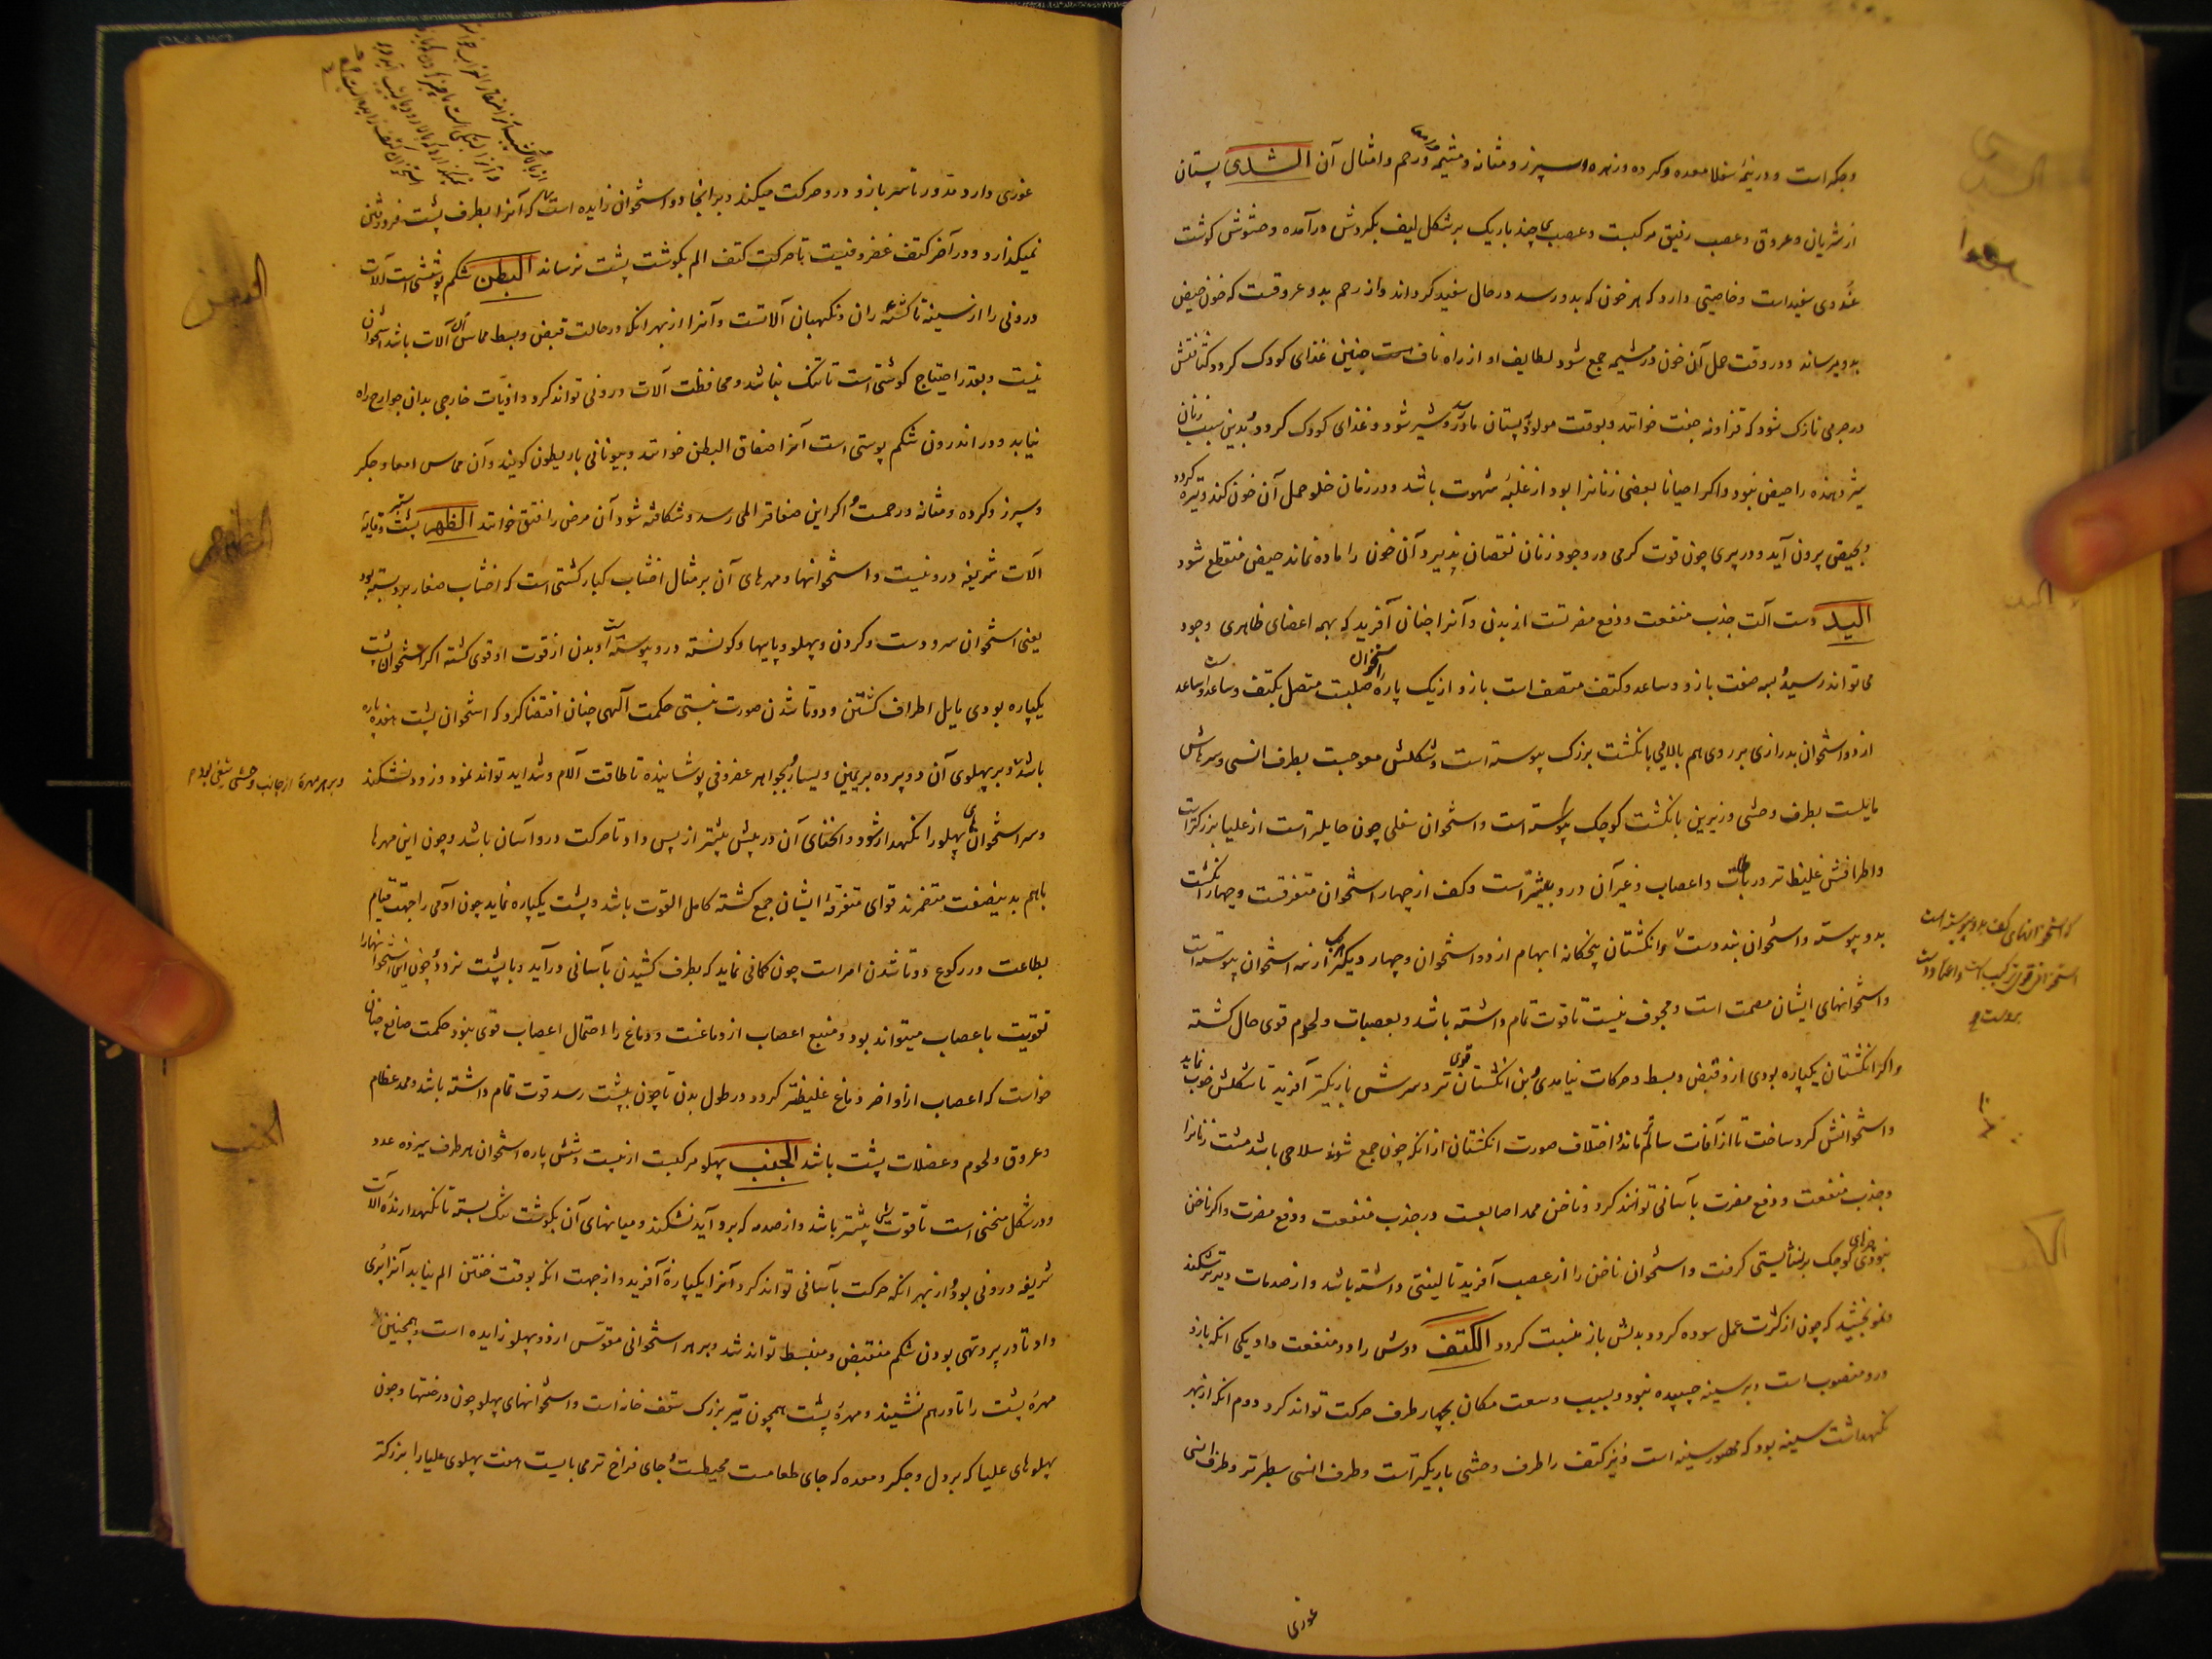 وجگر است و در نیمهٔ سفلا معده و کرده و زهره و سپرز و مثانه و مشیمه و رحم و امثال آن الثدی پستان
از شریان و عروق و عصب رقیق مرکبست و عصبی چند باریک بر شکل لیف بکردش درآمده و حشوش کوشت
غددی سفید است و خاصیتی دارد که هر خون که بدو رسد در حال سفید کرداند و از رحم بدو عروقست که خون حیض
بدو میرساند و در وقت حمل آن خون در مشیمه جمع شود لطایف او از راه ناف جنین غذای کودک کردد کثافتش
در جرمی نازک شود که بوقت مولود بپستان مادر رود و شیر شود و غذای کودک کردد بدین سبب زنان
شیر دهنده را حیض نبود و اکر احیانا بعضی زنانرا بود از غلبهٔ شهوت باشد و در زمان خلو حمل آن خون کنده و تیره کردد
و بحیض برون آید و در پیری چون قوت کرمی در وجود زنان نقصان پذیرد آن خون را ماده نماند حیض منقطع شود
الید دست آلت جذب منفعت و دفع مضرتست از بدن و آنرا چنان آفرید که بهمه اعضای ظاهری وجود
می تواند رسید و بسه صفت بازو و ساعد و کتف متصف است بازو از یک پاره استخوان صلبست متصل بکتف و ساعد و ساعد
از دو استخوان بدرازی بر روی هم بالایی بانکشت بزرک پیوسته است و شکلش معوجست بطرف انسی و سرهاش
مایلست بطرف وحشی و زیرین بانکشت کوچک پیوسته است و استخوان سفلی چون حاملتر است از علیا بزرکتر است
و اطرافش غلیظ تر و رباطات و اعصاب و غیر آن درو بیشتر است و کف از چهار استخوان متفرقست و چهار انکشت
بدو پیوسته و استخوان بند دست و انکشتان پنجکانه ابهام از دو استخوان و چهار دیکر هر یک از سه استخوان پیوسته است
و استخوانهای ایشان مصمت است و مجوف نیست تا قوت تمام داشته باشد و بعصبات و لحوم قوی حال کشته
و اکر انکشتان یکپاره بودی ازو قبض و بسط و حرکات نیامدی و بن انکشتان قوی تر و سرش باریکتر آفرید تا شکلش خوب نماید
و استخوانش کرد ساخت تا از آفات سالم ماند و اختلاف صورت انکشتان از آنکه چون جمع شوند سلاحی باشد مشت زنانرا
و جذب منفعت و دفع مضرت بآسانی توانند کرد و ناخن ممد اصابعست در جذب منفعت و دفع مضرت و اکر ناخن
نبودی چیزهای کوچک برنشایستی کرفت و استخوان ناخن را از عصب آفرید تا لینتی داشته باشد و از صدمات دیرتر شکند
و نمو بخشید که چون از کثرت عمل سوده کردد بدلش باز بنسبت کردد الکتف دوش را دو منفعت داد یکی آنکه بازو
درو منصوب است و بر سینه چسپیده نبود و بسبب وسعت مکان بچهار طرف حرکت تواند کرد دوم آنکه از بهر
نکهداشت سینه بود که سینه است و نیز کتف را طرف وحشی باریکتر است و طرف انسی سطبرتر و طرف انسی
که استخوانهای کف بدو پیوسته است
غوری
غوری دارد مدور تا سر بازو درو حرکت میکند و بر آنجا دو استخوان زایده است که آنرا بطرف پشت فرو رفتن
نمیکذارد و در آخر کتف غضروفیست تا حرکت کتف الم بکوشت پشت نرساند البطن شکم پوششی است آلات
درونی را از سینه تا کش ران و نکهبان آلاتست و آنرا از بهر آنکه در حالت قبض و بسط مماس آن آلات باشد استخوان
نیست و بقدر احتیاج کوشتی است تا تنک نباشد و محافظت آلات درونی تواند کرد و اذیات خارجی بدان جوارح راه
نیابد و در اندرون شکم پوستی است آنرا صفاق البطن خوانند و بیونانی باریطون کویند و آن مماس امعا و جکر
و سپرز و کرده و مثانه و رحمست و اکر این صفاقرا المی رسد و شکافته شود آن مرض را فتق خوانند الظهر پشت وقایهٔ
آلات شریفه درونیست و استخوانها و مهرهای آن بر مثال اخشاب کبار کشتی است که اخشاب صغار برو بسته بود
یعنی استخوان سر و دست و کردن و پهلو و پایها و کونسته درو پیوسته است و بدن از قوت او قوی کشته اکر استخوان پشت
یکپاره بودی مایل اطراف کشتن و دوتا شدن صورت نبستی حکمت آلهی چنان اقتضا کرد که استخوان پشت هفده پاره
باشد و بر پهلوی آن دو پرده بر یمین و یسار بجواهر غضروفی پوشانیده تا طاقت آلام و شداید تواند نمود و زود نشکند
و سر استخوانهای پهلو را نکهدار شود و انحنای آن در پیش بیشتر از پس داد تا حرکت درو آسان باشد و چون این مهرها
باهم بدینصفت منضمرند قوای متفرقهٔ ایشان جمع کشته کامل القوت باشد و پشت یکپاره نماید چون آدمی را جهت قیام
بطاعت و رکوع دوتا شدن امر است چون کمانی نماید که بطرف کشیدن بآسانی درآید و با پشت نرود و چون این استخوانهارا
تقویت باعصاب میتواند بود و منبع اعصاب از دماغست و دماغ را احتمال اعصاب قوی نبود حکمت صانع چنان
خواست که اعصاب از اواخر دماغ غلیظتر کردد و در طول بدن تا چون بپشت رسد قوت تمام داشته باشد و ممد عظام
و عروق و لحوم و عضلات پشت باشد الجنب پهلو مرکبست از بیست و شش پاره استخوان هر طرف سیزده عدد
و در شکل منحنی است تا قوتش بیشتر باشد و از صدمه که برو آید نشکند و میانهای آن بکوشت تنک بسته تا نکهدارندهٔ آلات
شریفه درونی بود و از بهر آنکه حرکت بآسانی تواند کرد آنرا یکپاره آفرید و از جهت آنکه بوقت خفتن الم نیابد آنرا
داد تا در پر و تهی بودن شکم منقبض و منبسط تواند شد و بر هر استخوانی مقوس از دو پهلو زایده است و همچنین
مهره پشت را تا در هم نشیند و مهرهٔ پشت همچون تیر بزرک سقف خانه است و استخوانهای پهلو چون درختها و چون
پهلوهای علیا که بر دل و جکر و معده که جای طعامست محیطست و جای فراخ تر می بایست هفت پهلوی علیا را بزرکتر
و بر هر مهره از جانب وحشی شقی بود
الظهر
الجنب